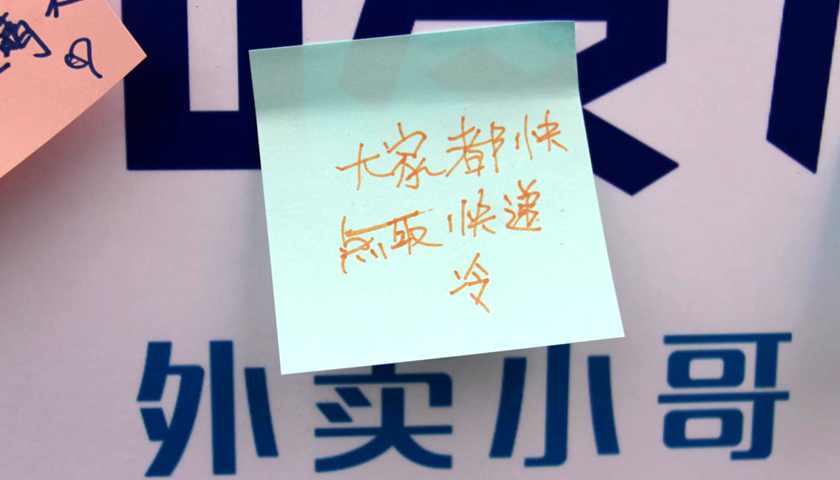 大家都快
点取快递
冷
外卖小哥